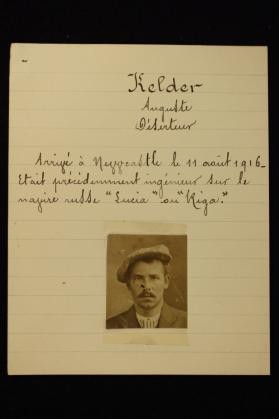 Kelder
Auguste
Déserteur
Arrivé à Newcastle le 11 août 1916_
Etait précédemment ingénieur sur le
navire russe "Lucia" ou "Riga."